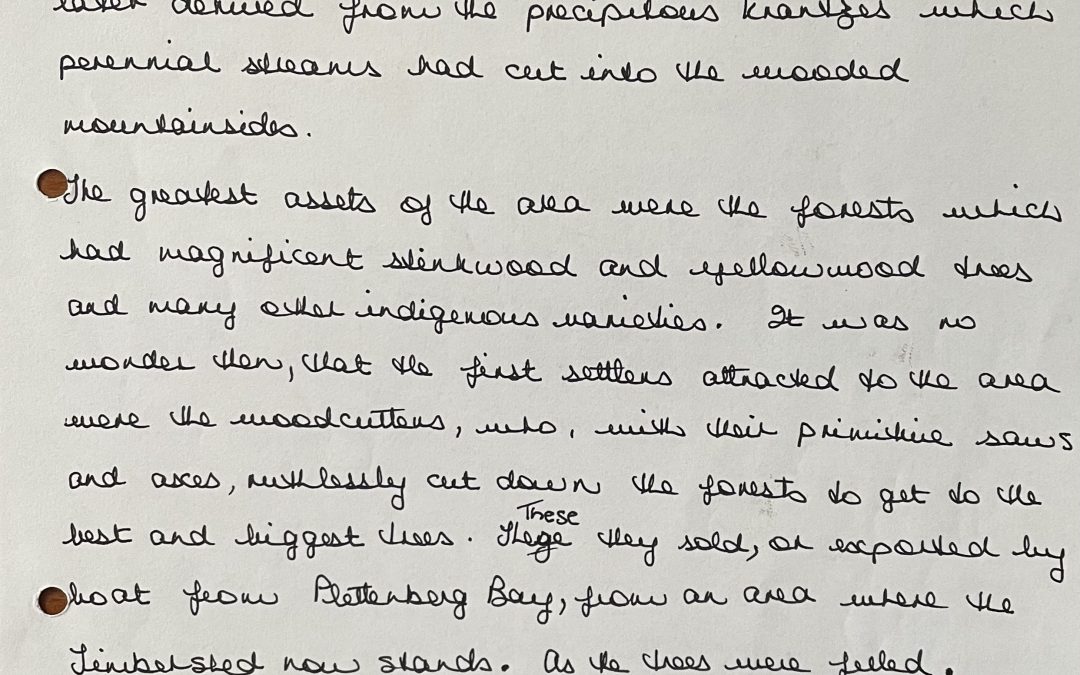 later derived from the precipitous krantzes which
perennial streams had cut into the wooded
mountainsides.
The greatest assets of the area were the forests which
had magnificent stinkwood and yellowwood trees
and many other indigenous varieties. It was no
wonder then, that the first settlers attracted to the area
were the woodcutters, who, with their primitive saws
and axes, ruthlessly cut down the forests to get to the
These
best and biggest trees. These they sold, or exported by
boat from Plettenberg Bay, from an area where the
Timbershed now stands. As the trees were felled,